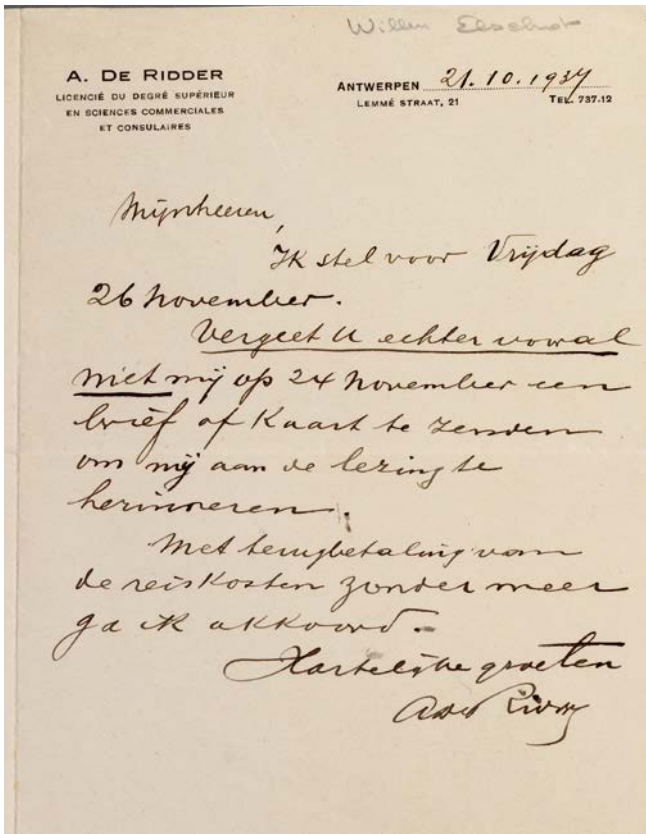 Willem Elsschot
A. DE RIDDER
LICENCIÉ DU DEGRÉ SUPÉRIEUR
EN SCIENCES COMMERCIALES
ET CONSULAIRES
ANTWERPEN 21.10.1937
LEMMÉ STRAAT, 21 TEL. 737.12
Mijnheeren,
Ik stel voor Vrijdag
26 November.
Vergeet U echter vooral
niet mij op 24 November een
brief of Kaart te zenden
om mij aan de lezing te
herinneren.
Met terugbetaling van
de reiskosten zonder meer
ga ik akkoord.
Hartelijke groeten
A de Ridder